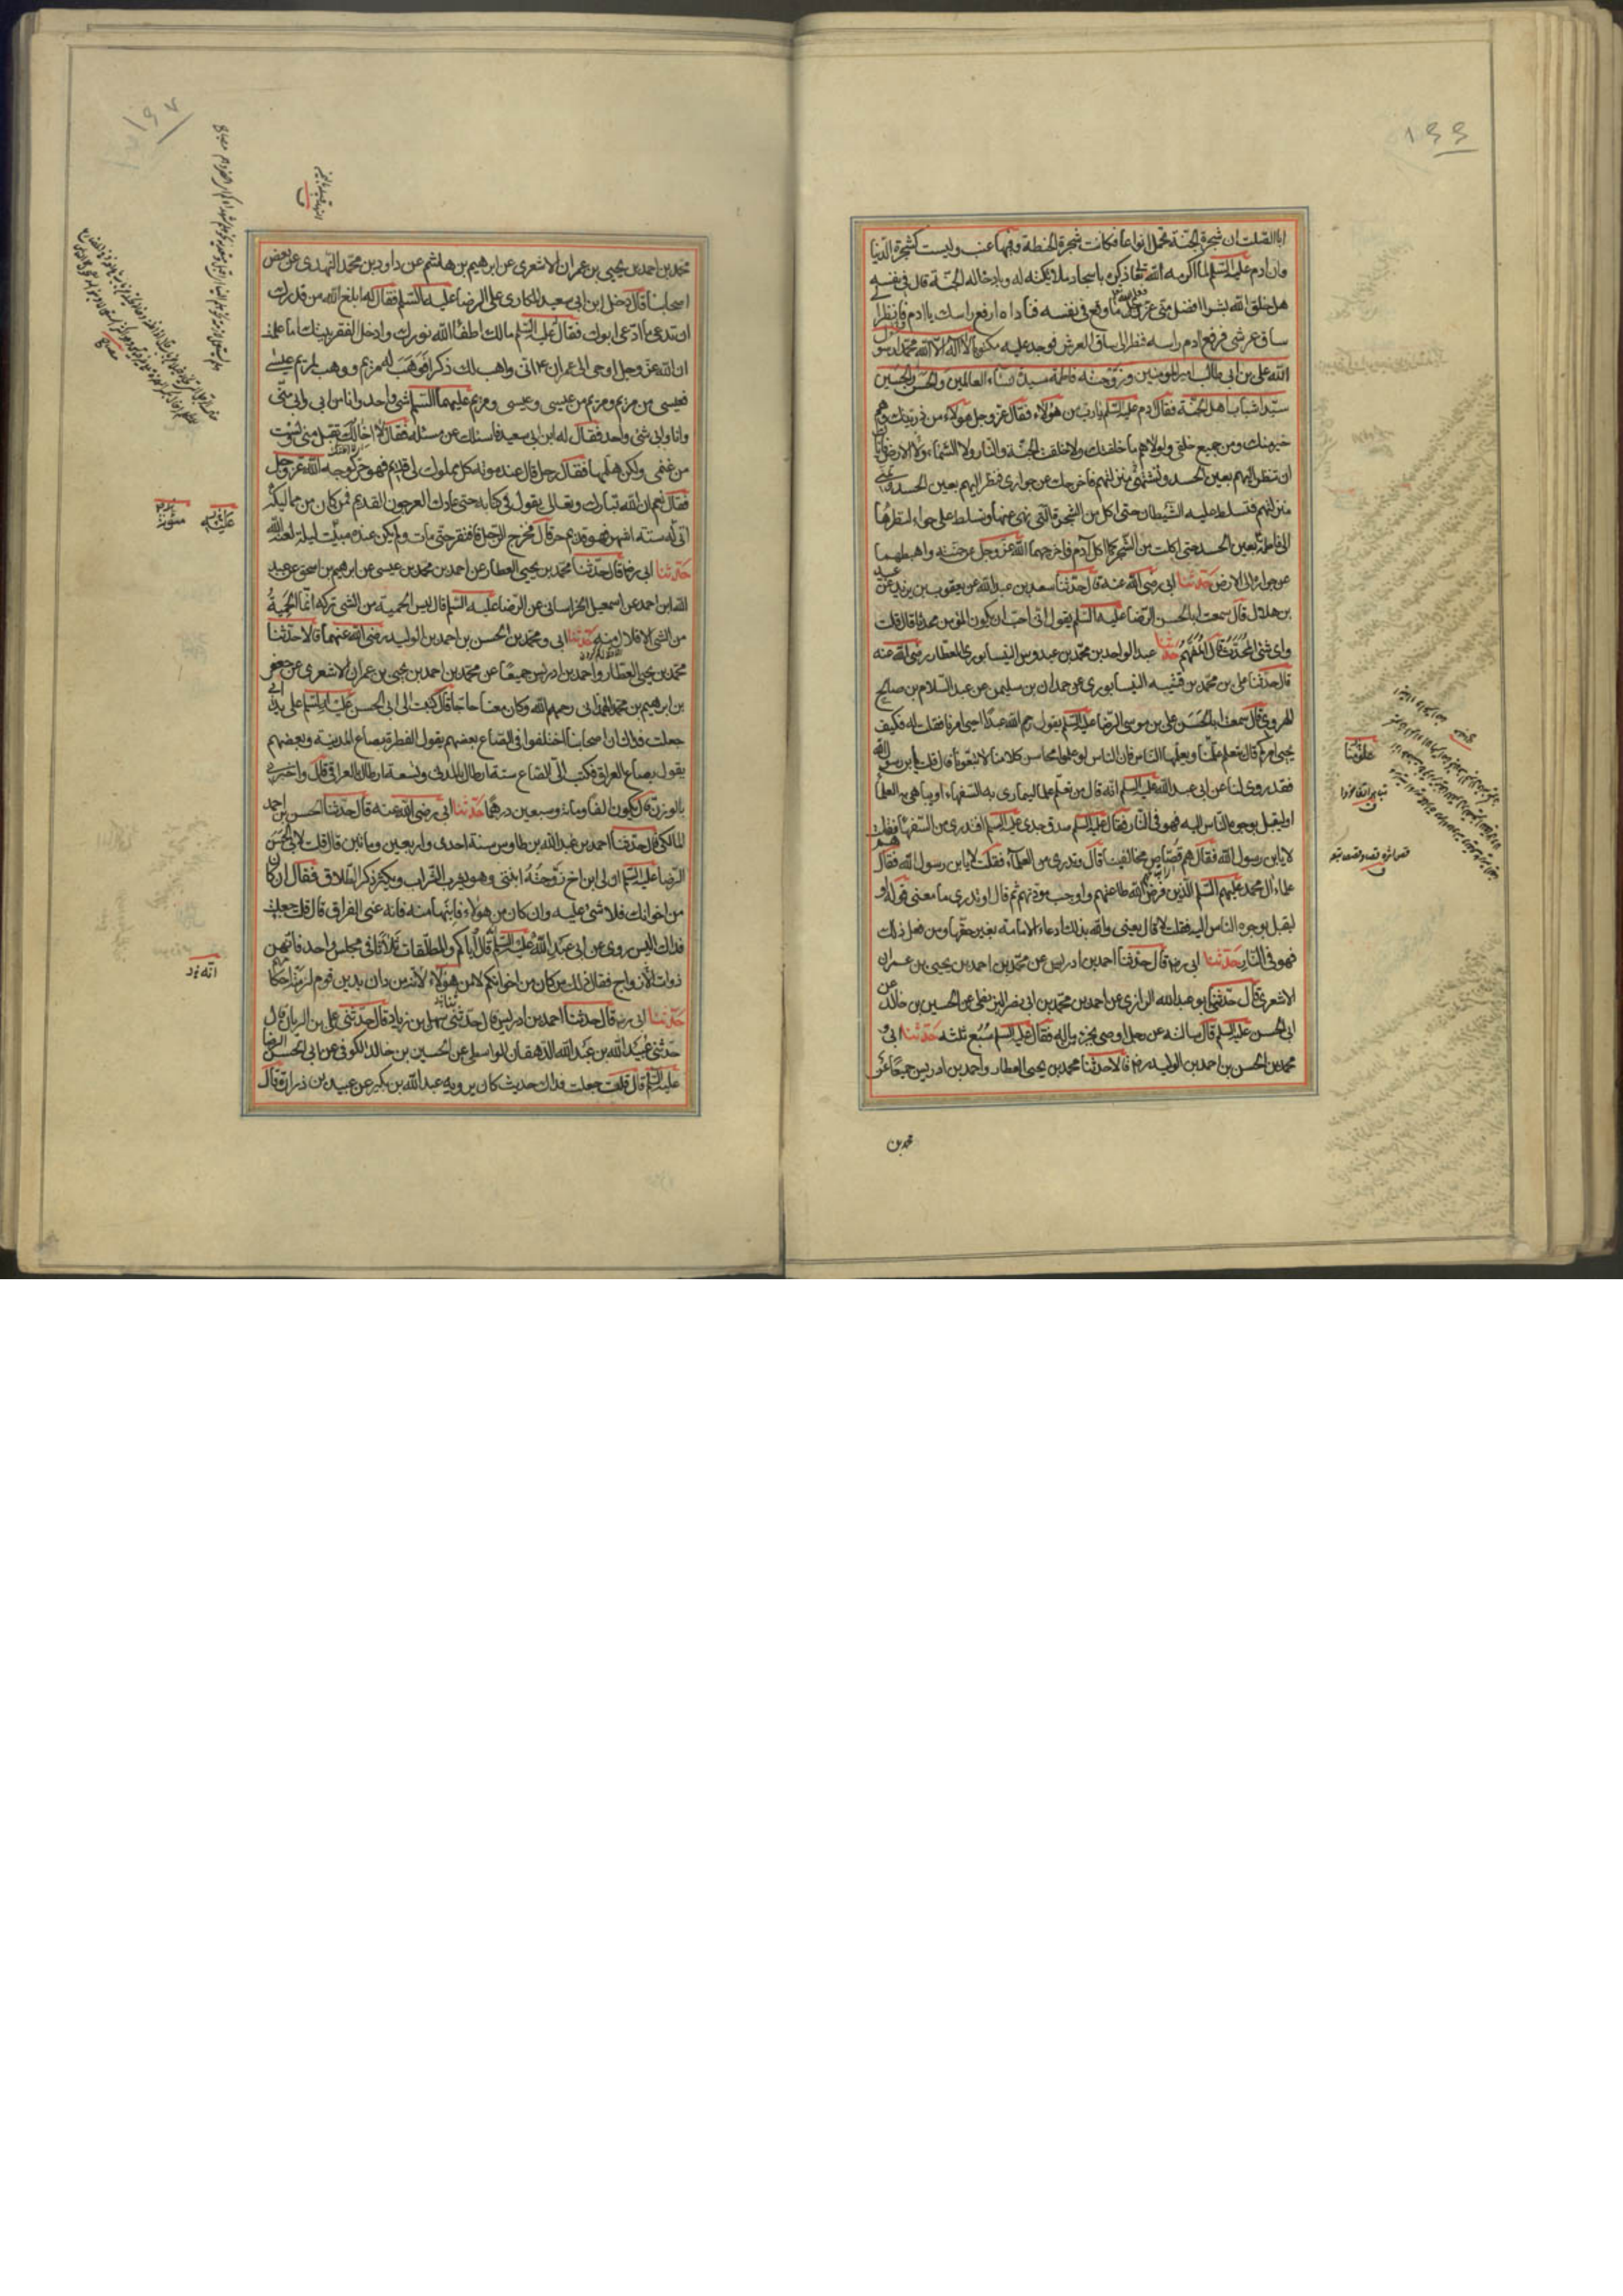 ١٩٩
ابا الصلت ان شجرة الجنة تحمل انواعا فكانت شجرة الحنطة وفيها عنب وليست كشجرة الدنيا
وان ادم عليه السلم لما اكرمه الله تعالى ذكره باسجاد ملائكته له وبادخاله الجنة قال في نفسه
هل خلق الله بشرا افضل مني فعلم الله عز وجل ما وقع في نفسه فناداه ارفع راسك يا ادم فانظر الى
ساق عرشي فرفع ادم راسه فنظر الى ساق العرش فوجد عليه مكتوبا لا اله الا الله محمد رسول
الله علي بن ابي طالب امير المؤمنين وزوجته فاطمة سيدة نساء العالمين والحسن والحسين
سيدا شباب اهل الجنة فقال ادم عليه السلم يا رب من هؤلاء فقال عز وجل هؤلاء من ذريتك وهم
خير منك ومن جميع خلقي ولولاهم ما خلقتك ولا خلقت الجنة والنار ولا السماء ولا الارض فاياك
ان تنظر اليهم بعين الحسد وتتمنى منزلتهم فاخرجك عن جواري فنظر اليهم بعين الحسد وتمنى
منزلتهم فتسلط عليه الشيطان حتى اكل من الشجرة التي نهي عنها وتسلط على حواء لنظرها
الى فاطمة بعين الحسد حتى اكلت من الشجرة كما اكل آدم فاخرجهما الله عز وجل عن جنته واهبطهما
عن جواره الى الارض حدثنا ابي رضي الله عنه قال حدثنا سعد بن عبد الله عن يعقوب بن يزيد عن عبيد
بن هلال قال سمعت ابا الحسن الرضا عليه السلم يقول اني احب ان يكون المؤمن محدثا قال قلت
واي شئ المحدث قال المفهم حدثنا عبد الواحد بن محمد بن عبدوس النيسابوري العطار رضي الله عنه
قال حدثنا علي بن محمد بن قتيبه النيسابوري عن حمدان بن سليمن عن عبد السلام بن صالح
الهروي قال سمعت ابا الحسن علي بن موسى الرضا عليه السلم يقول رحم الله عبدا احيى امرنا فقلت له فكيف
يحيى امركم قال يتعلم علومنا ويعلمها الناس فان الناس لو علموا محاسن كلامنا لاتبعونا قال قلت يا بن رسول الله
فقد روي لنا عن ابي عبد الله عليه السلم انه قال من تعلم علما ليماري به السفهاء او يباهي به العلماء
او ليقبل بوجوه الناس اليه فهو في النار فقال عليه السلم صدق جدي عليه السلم افتدري من السفهاء فقلت
لا يا بن رسول الله فقال هم قصاص مخالفينا قال وتدري من العلماء فقلت لا يا بن رسول الله فقال هم
علماء ال محمد عليهم السلم الذين فرض الله طاعتهم واوجب مودتهم ثم قال او تدري ما معنى قوله او
ليقبل بوجوه الناس اليه فقلت لا قال يعني والله بذلك ادعاء الامامة بغير حقها ومن فعل ذلك
فهو في النار حدثنا ابي رضه قال حدثنا احمد بن ادريس عن محمد بن احمد بن يحيى بن عمران
الاشعري قال حدثنا ابو عبد الله الرازي عن احمد بن محمد بن ابي نصر البزنطي عن الحسين بن خالد عن
ابي الحسن عليه السلم قال سالته عن رجل اوصى بجزء ماله فقال عليه السلم سبع ثلثه حدثنا ابي و
محمد بن الحسن بن احمد بن الوليد رضه قالا حدثنا محمد بن يحيى العطار واحمد بن ادريس جميعا عن
محمد بن
علومنا
محمد بن احمد بن يحيى بن عمران الاشعري عن ابرهيم بن هاشم عن داود بن محمد النهدي عن بعض
اصحابنا قال دخل ابن ابي سعيد المكاري على الرضا عليه السلم فقال له ابلغ الله من قدرك
ان تدعي ما ادعى ابوك فقال عليه السلم مالك اطفأ الله نورك وادخل الفقر بيتك اما علمت
ان الله عز وجل اوحى الى عمران اني واهب لك ذكرا فوهب له مريم ووهب لمريم عيسى
فعيسى من مريم ومريم من عيسى وعيسى ومريم عليهما السلم شئ واحد وانا من ابي وابي مني
وانا وابي شئ واحد فقال له ابن ابي سعيد فاسئلك عن مسئلة فقال لا اخالك تقبل مني ولست
من غنمي ولكن هلمها فقال رجل قال عند موته كل مملوك لي قديم فهو حر لوجه الله عز وجل
فقال نعم ان الله تبارك وتعالى يقول في كتابه حتى عاد كالعرجون القديم فمن كان من مماليكه
اتى له ستة اشهر فهو قديم حر قال فخرج الرجل فافتقر حتى مات ولم يكن عنده مبيت ليلة لعنه الله
حدثنا ابي رضه قال حدثنا محمد بن يحيى العطار عن احمد بن محمد بن عيسى عن ابرهيم بن اسحق عن عبد
الله ابن احمد عن اسمعيل الخراساني عن الرضا عليه السلم قال ليس الحمية من الشئ تركه انما الحمية
من الشئ الاقلال منه حدثنا ابي ومحمد بن الحسن بن احمد بن الوليد رضي الله عنهما قالا حدثنا
محمد بن يحيى العطار واحمد بن ادريس جميعا عن محمد بن احمد بن يحيى بن عمران الاشعري عن جعفر
بن ابرهيم بن محمد الهمداني رحمهم الله وكان معنا حاجا قال كتبت الى ابي الحسن عليه السلم على يدي ابي
جعلت فداك ان اصحابنا اختلفوا في الصاع بعضهم يقول الفطرة بصاع المدينة وبعضهم
يقول بصاع العراقي فكتب الي الصاع ستة ارطال بالمدني وتسعة ارطال بالعراقي قال واخبرني
بالوزن قال يكون الفا ومائة وسبعين درهما حدثنا ابي رضي الله عنه قال حدثنا الحسن بن احمد
المالكي قال حدثنا احمد بن عبد الله بن طاوس سنة احدى واربعين ومائتين قال قلت لابي الحسن
الرضا عليه السلم ان لي ابن اخ زوجته ابنتي وهو يشرب الشراب ويكثر ذكر الطلاق فقال ان كان
من اخوانك فلا شئ عليه وان كان من هؤلاء فابنها منه فانه عنى الفراق قال قلت جعلت
فداك اليس روي عن ابي عبد الله عليه السلم انه قال اياكم والمطلقات ثلاثا في مجلس واحد فانهن
ذوات الازواج فقال ذلك من كان من اخوانكم لا من هؤلاء لانه من دان بدين قوم لزمته احكامهم
حدثنا ابي رضه قال حدثنا احمد بن ادريس قال حدثني سهل بن زياد قال حدثني علي بن الريان قال
حدثني عبيد الله بن عبد الله الدهقان الواسطي عن الحسين بن خالد الكوفي عن ابي الحسن الرضا
عليه السلم قال قلت جعلت فداك حديث كان يرويه عبد الله بن بكير عن عبيد بن زرارة قال